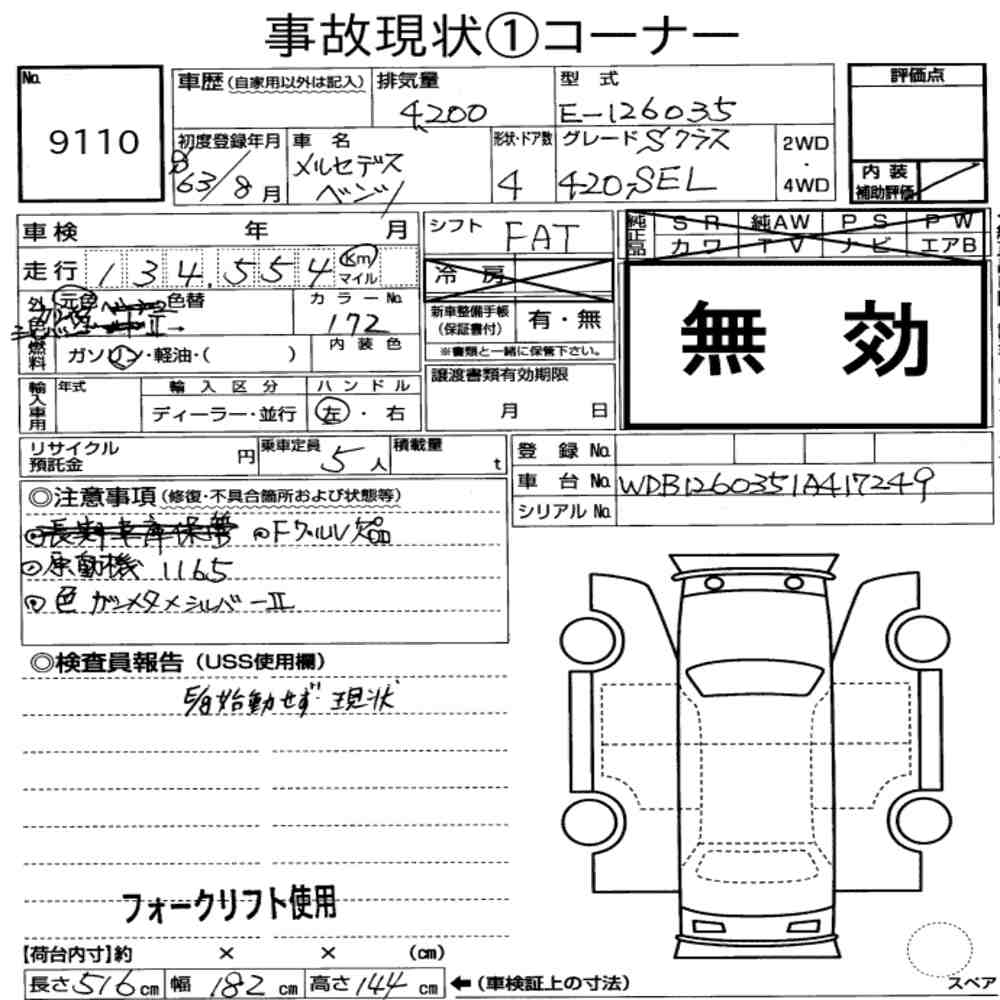 事故現状①コーナー
No. 9110
車歴(自家用以外は記入)
排気量 4200
型式 E-126035
評価点
初度登録年月 S63/8月
車名 メルセデスベンツ
形状・ドア数 4
グレード Sクラス 420,SEL
2WD・4WD
内装補助評価
車検 年 月
シフト FAT
純正品 SR 純AW PS PW
カワ TV ナビ エアB
走行 134,554 Km マイル
冷房
無効
外 元色 色替
シルバー
カラーNo. 172
新車整備手帳(保証書付) 有・無
※書類と一緒に保管下さい。
燃料 ガソリン・軽油・( )
内装色
輸入車用 年式
輸入区分 ディーラー・並行
ハンドル 左・右
譲渡書類有効期限
月 日
リサイクル預託金 円
乗車定員 5人
積載量 t
登録No.
車台No. WDB1260351A417249
シリアルNo.
◎注意事項(修復・不具合箇所および状態等)
長期車庫保管 ⊙Fグリル欠品
⊙原動機 1165
⊙色 ガンメタメシルバーII
◎検査員報告(USS使用欄)
5/8始動せず 現状
フォークリフト使用
【荷台内寸】約 × × (cm)
長さ516cm 幅182cm 高さ144cm ←(車検証上の寸法)
スペア